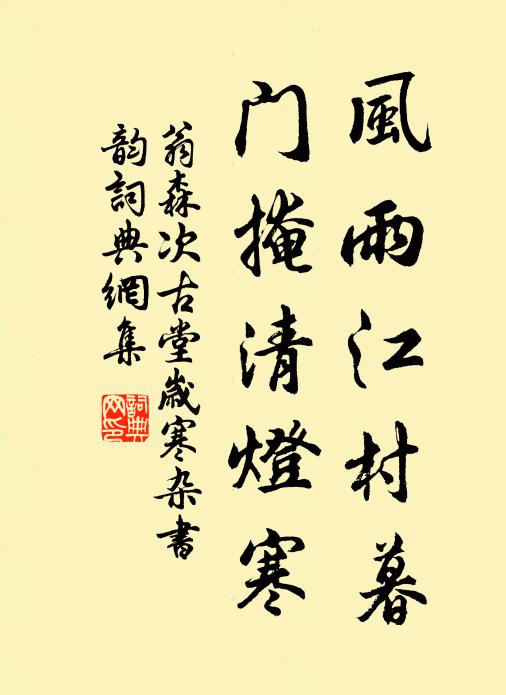 風雨江村暮
門掩清燈寒
翁森次古堂歲寒杂書
韵詞典網集
詞典网印